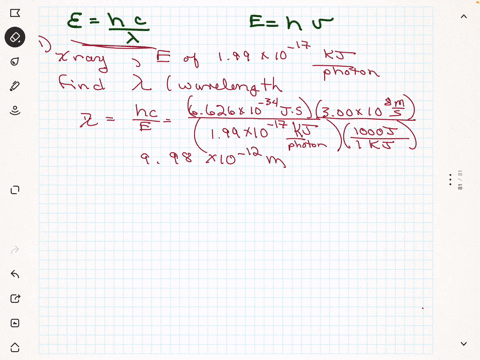 E = hc/λ E = hν
1) xray, E of 1.99 × 10⁻¹⁷ KJ/photon
find λ (wavelength
λ = hc/E = (6.626×10⁻³⁴ J.S)(3.00×10⁸ m/s) / (1.99×10⁻¹⁷ KJ/photon)(1000J/1KJ)
9.98 ×10⁻¹² m